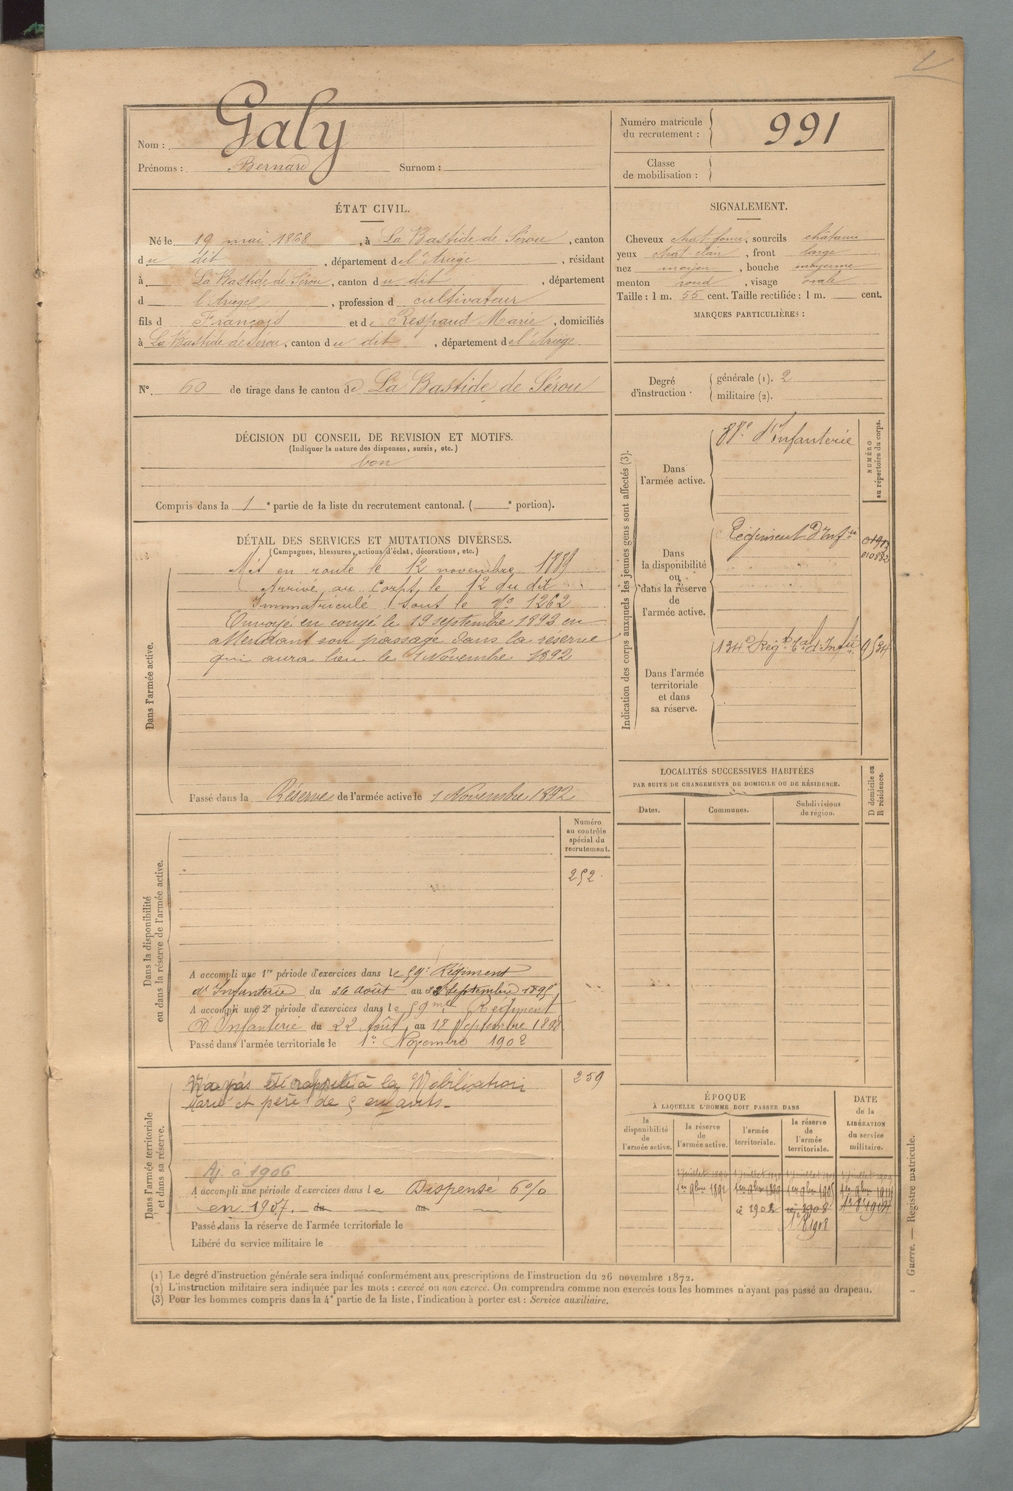 Nom : Galy
Prénoms : Bernard Surnom :
Numéro matricule du recrutement : 991
Classe de mobilisation :
ÉTAT CIVIL.
Né le 19 mai 1868, à La Bastide de Sérou, canton
du dit, département de l'Ariège, résidant
à La Bastide de Sérou, canton du dit, département
d l'Ariège, profession d cultivateur
fils d François et de Respaud Marie, domiciliés
à La Bastide de Sérou, canton du dit, département de l'Ariège.
SIGNALEMENT.
Cheveux chat. foncé, sourcils châtains
yeux chat clair, front large
nez moyen, bouche moyenne
menton rond, visage ovale
Taille : 1 m. 55 cent. Taille rectifiée : 1 m. cent.
MARQUES PARTICULIÈRES :
N° 60 de tirage dans le canton de La Bastide de Sérou
Degré d'instruction. générale (1). 2
militaire (2).
DÉCISION DU CONSEIL DE REVISION ET MOTIFS.
(Indiquer la nature des dispenses, sursis, etc.)
bon
Compris dans la 1e partie de la liste du recrutement cantonal. ( e portion).
DÉTAIL DES SERVICES ET MUTATIONS DIVERSES.
(Campagnes, blessures, actions d'éclat, décorations, etc.)
Dans l'armée active.
Mis en route le 12 novembre 1889
Arrivé au Corps le 12 du dit
Immatriculé sous le N° 1262
Envoyé en congé le 19 septembre 1892 en
attendant son passage dans la réserve
qui aura lieu le 1 Novembre 1892
Passé dans la Réserve de l'armée active le 1 Novembre 1892
Indication des corps auxquels les jeunes gens sont affectés (3).
NUMÉRO au répertoire du corps.
Dans l'armée active.
88e d'Infanterie
Dans la disponibilité ou dans la réserve de l'armée active.
Régiment d'Infie
Dans l'armée territoriale et dans sa réserve.
134e Régt tal d'Infie
LOCALITÉS SUCCESSIVES HABITÉES
PAR SUITE DE CHANGEMENTS DE DOMICILE OU DE RÉSIDENCE.
D domicile ou R résidence.
Dates. Communes. Subdivisions de région.
Dans la disponibilité ou dans la réserve de l'armée active.
Numéro au contrôle spécial du recrutement.
252
A accompli une 1re période d'exercices dans le 59e Régiment
d'Infanterie du 26 août au 22 Septembre 1895
A accompli une 2e période d'exercices dans le 59me Régiment
d'Infanterie du 22 Août au 18 Septembre 1898
Passé dans l'armée territoriale le 1er Novembre 1902
Dans l'armée territoriale et dans sa réserve.
259
N'a pas été rappelé à la Mobilisation
Marié et père de 5 enfants.
Aj. à 1906
A accompli une période d'exercices dans le Dispensé 6%
en 1907. du au
Passé dans la réserve de l'armée territoriale le
Libéré du service militaire le
ÉPOQUE
À LAQUELLE L'HOMME DOIT PASSER DANS
DATE de la LIBÉRATION du service militaire.
la disponibilité de l'armée active. la réserve de l'armée active. l'armée territoriale. la réserve de l'armée territoriale.
1er 9bre 1892
à 1902
1er 8 1908
(1) Le degré d'instruction générale sera indiqué conformément aux prescriptions de l'instruction du 26 novembre 1872.
(2) L'instruction militaire sera indiquée par les mots : exercé ou non exercé. On comprendra comme non exercés tous les hommes n'ayant pas passé au drapeau.
(3) Pour les hommes compris dans la 4e partie de la liste, l'indication à porter est : Service auxiliaire.
Guerre. — Registre matricule.